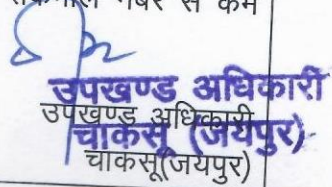 नंबर से कम
उपखण्ड अधिकारी
चाकसू (जयपुर)
उपखण्ड अधिकारी
चाकसू(जयपुर)